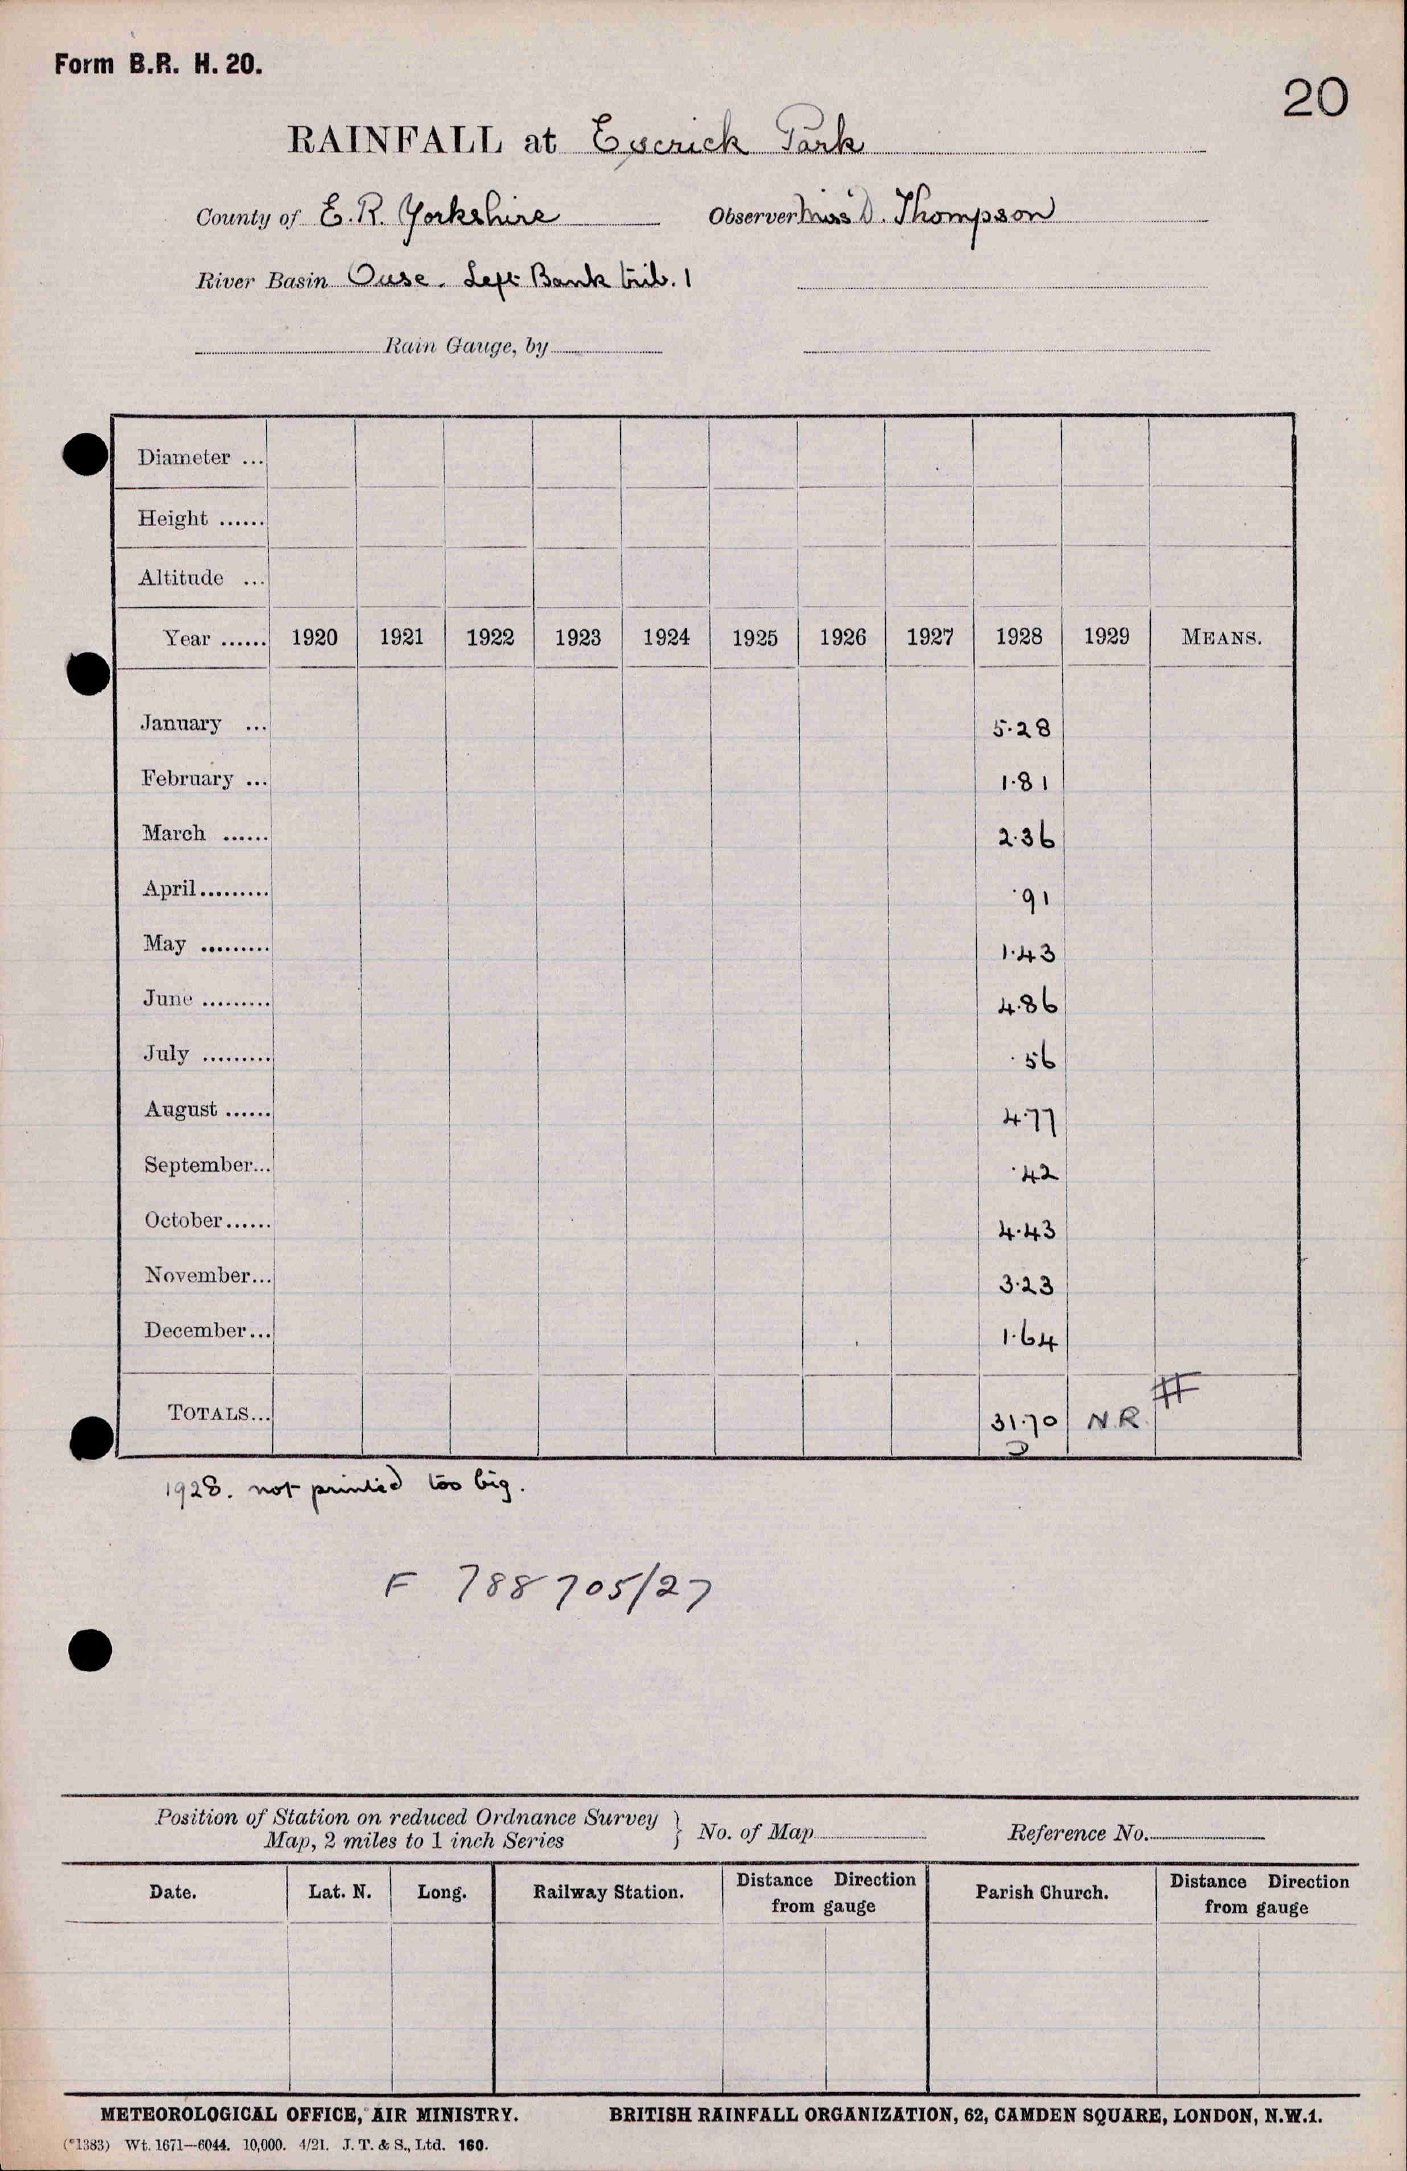 Form B.R. H. 20.
20
RAINFALL at Escrick Park
County of E.R. Yorkshire Observer Miss D. Thompson
River Basin Ouse. Left Bank trib. 1
Rain Gauge, by
Diameter ...
Height ......
Altitude ...
Year ...... 1920 1921 1922 1923 1924 1925 1926 1927 1928 1929 MEANS.
January ... 5.28
February ... 1.81
March ...... 2.36
April......... .91
May ......... 1.43
June ......... 4.86
July ......... .56
August ...... 4.77
September... .42
October...... 4.43
November... 3.23
December... 1.64
TOTALS... 31.70 N.R. #
D
1928. not printed too big.
F 788705/27
Position of Station on reduced Ordnance Survey
Map, 2 miles to 1 inch Series } No. of Map Reference No.
Date. Lat. N. Long. Railway Station. Distance Direction from gauge Parish Church. Distance Direction from gauge
METEOROLOGICAL OFFICE, AIR MINISTRY. BRITISH RAINFALL ORGANIZATION, 62, CAMDEN SQUARE, LONDON, N.W.1.
(*1383) Wt. 1671—6044. 10,000. 4/21. J. T. & S., Ltd. 160.